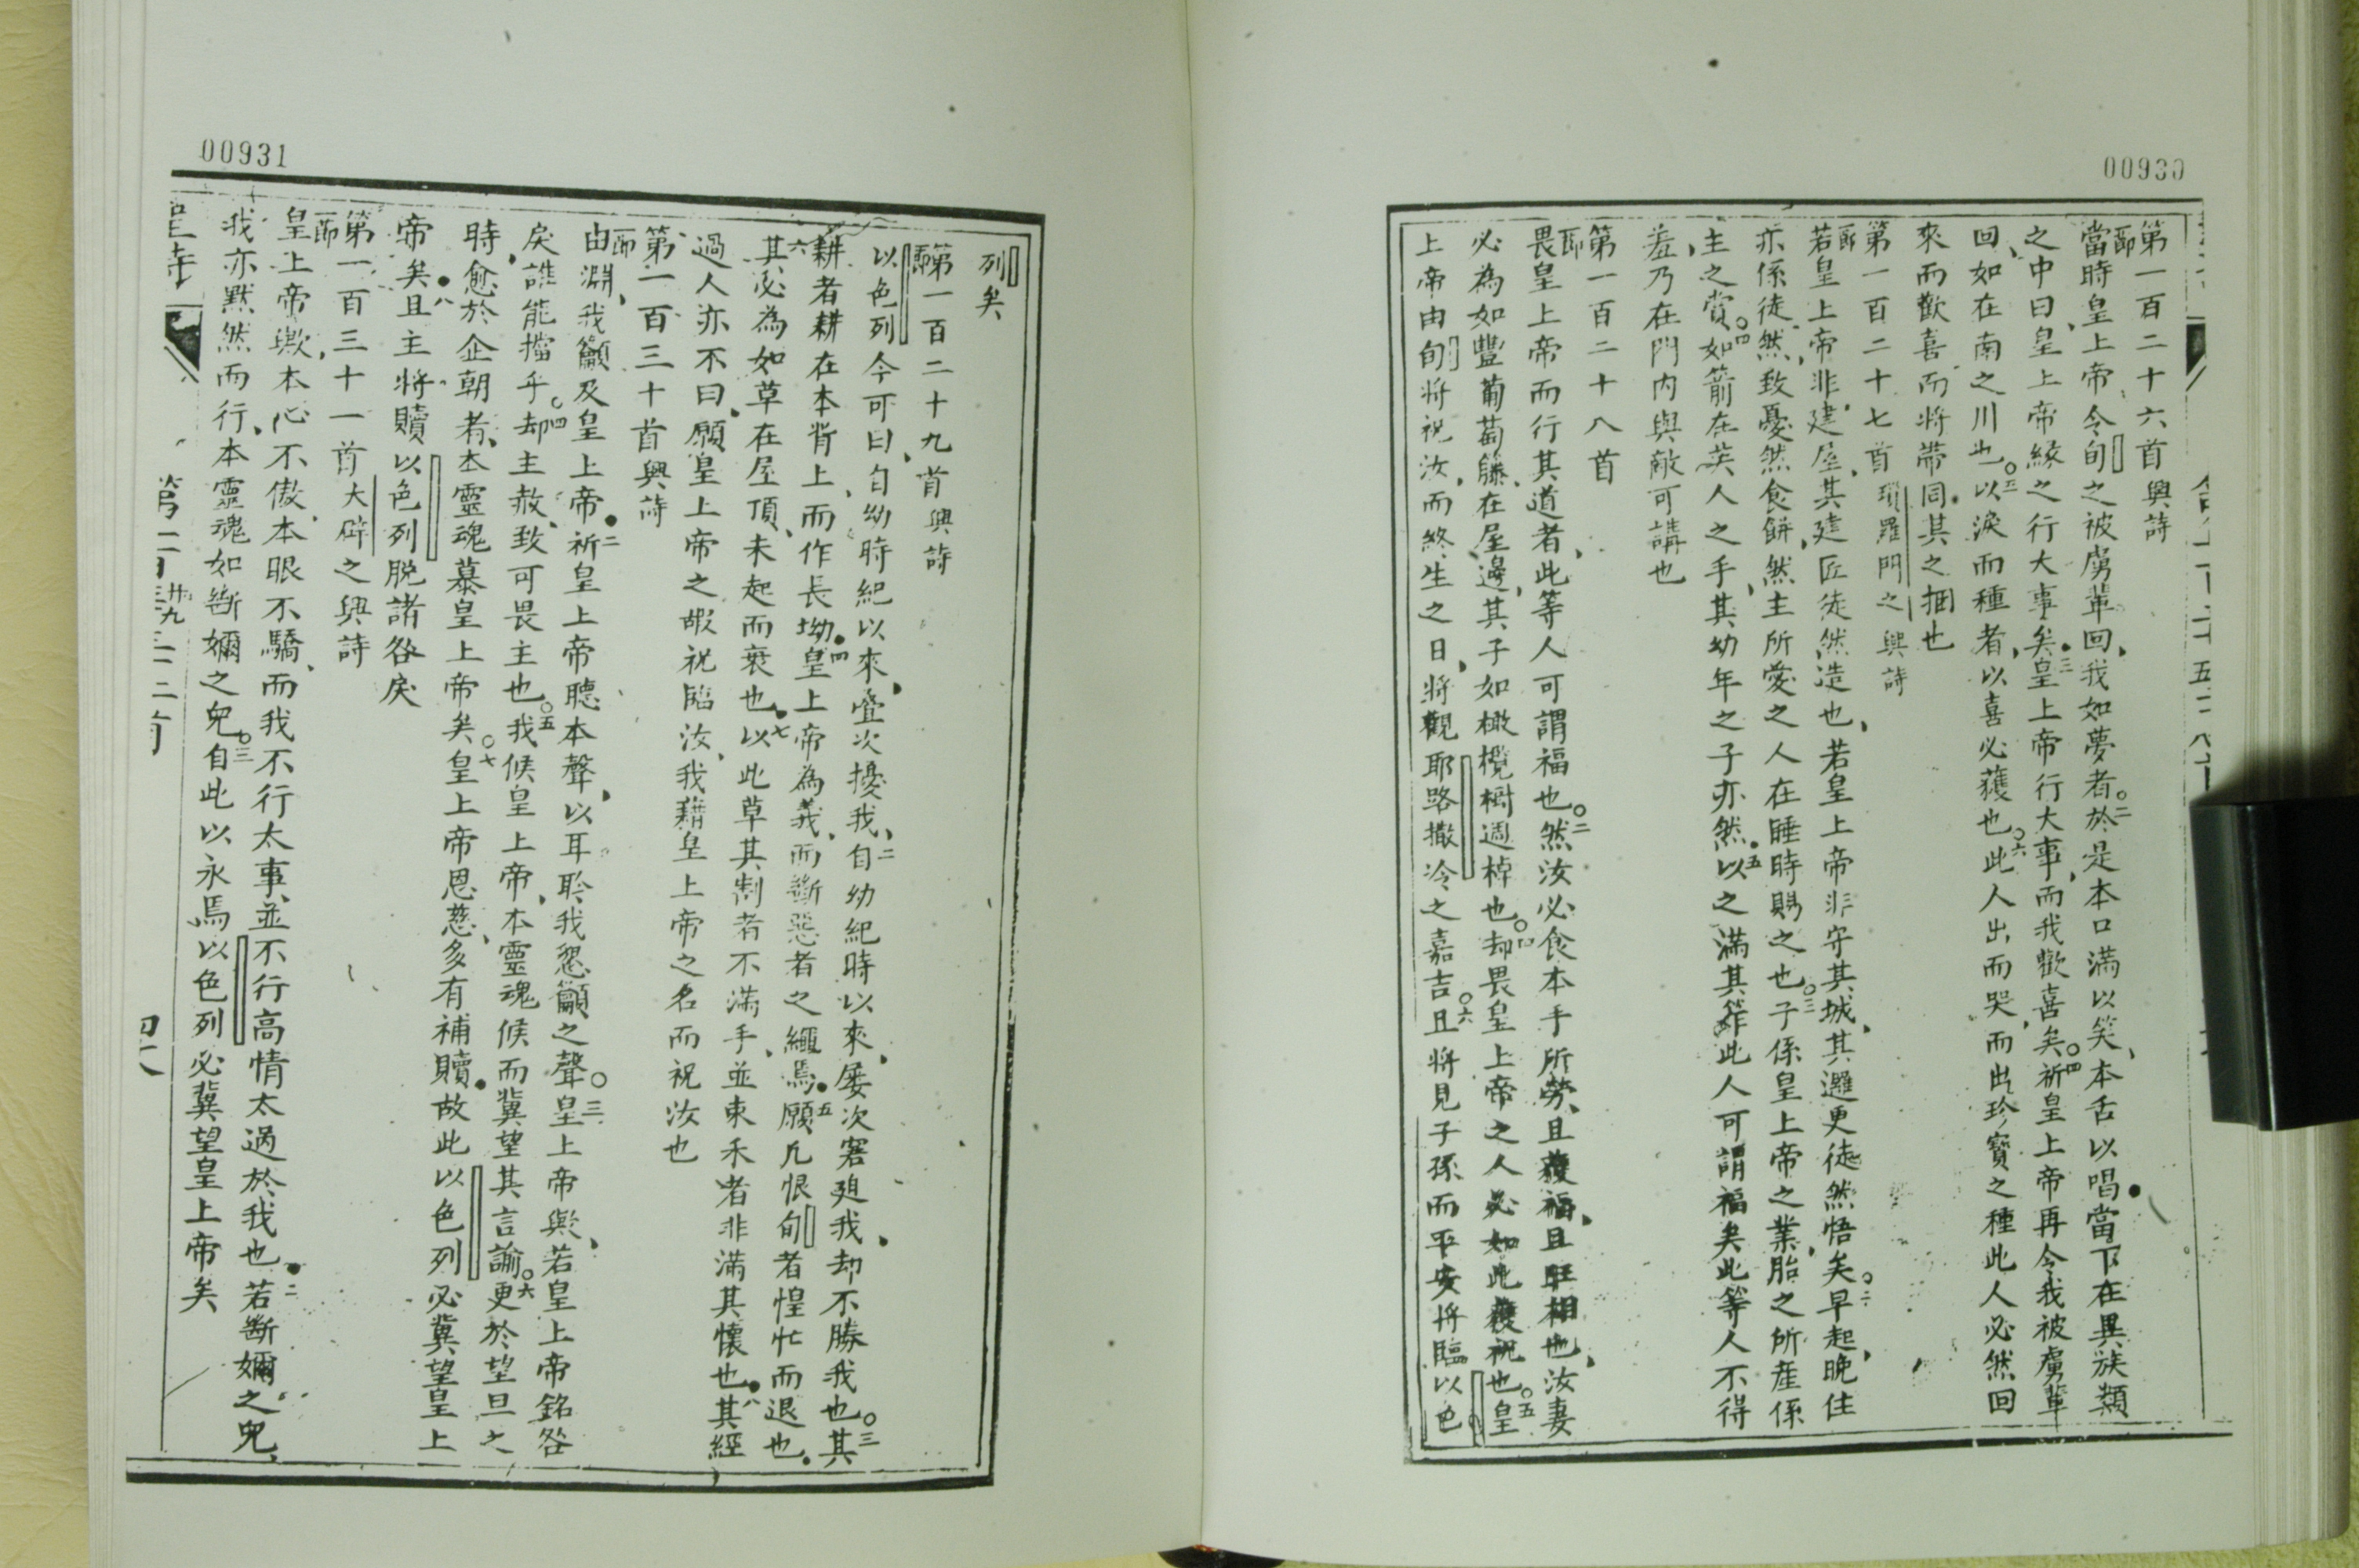 00930
第一百二十六首與詩
節當時皇上帝令旬之被虜輩回、我如夢者。二於是本口滿以笑、本舌以唱當下在異族類
之中曰、皇上帝緣之行大事矣三皇上帝行大事、而我歡喜矣。四祈皇上帝再令我被虜輩
回、如在南之川也。五以淚而種者、以喜必獲也。六此人出而哭、而出珍寶之種此人必然回
來而歡喜而將帶同其之捆也
第一百二十七首瑣羅門之與詩
節若皇上帝非建屋、其建匠徒然造也、若皇上帝非守其城、其邏更徒然悟矣。二早起、晚住
亦係徒然、致憂然食餅、然主所愛之人在睡時賜之也。三子係皇上帝之業、胎之所產係
主之賞。四如箭在英人之手、其幼年之子亦然五以之滿其箙此人可謂福矣此等人不得
羞、乃在門內與敵可講也
第一百二十八首
節畏皇上帝而行其道者、此等人可謂福也。二然汝必食本手所勞、且獲福、且旺相也、汝妻
必為如豐葡萄籐、在屋邊、其子如橄欖樹週棹也。四却畏皇上帝之人必如此獲祝也。五皇
上帝由旬將祝汝、而終生之日、將觀耶路撒冷之嘉吉。六且將見子孫而平安將臨以色
00931
列矣
第一百二十九首與詩
節以色列今可曰、自幼時紀以來、疊次擾我、二自幼紀時以來、屡次窘廹我、却不勝我也。三其
耕者耕在本背上、而作長坳四皇上帝為義、而斷惡者之繩焉五願凡恨旬者惶忙而退也
六其必為如草在屋頂、未起而衰也七以此草其割者不滿手、並束禾者非滿其懷也八其經
過人亦不曰、願皇上帝之嘏祝臨汝、我藉皇上帝之名而祝汝也
第一百三十首與詩
節由淵、我籲及皇上帝二祈皇上帝聽本聲、以耳聆我懇籲之聲。三皇上帝歟、若皇上帝銘咎
戾、誰能擋乎。四却主赦、致可畏主也。五我候皇上帝、本靈魂候而冀望其言諭。六更於望旦之
時、愈於企朝者、本靈魂慕皇上帝矣。七皇上帝恩慈、多有補贖故此以色列必冀望皇上
帝矣八且主將贖以色列脱諸咎戾
第一百三十一首大辟之與詩
節皇上帝歟、本心不傲、本眼不驕、而我不行太事、並不行高情太過於我也二若斷嬭之兒、
我亦默然而行、本靈魂如斷嬭之兒。三自此以永焉以色列必冀望皇上帝矣
聖詩